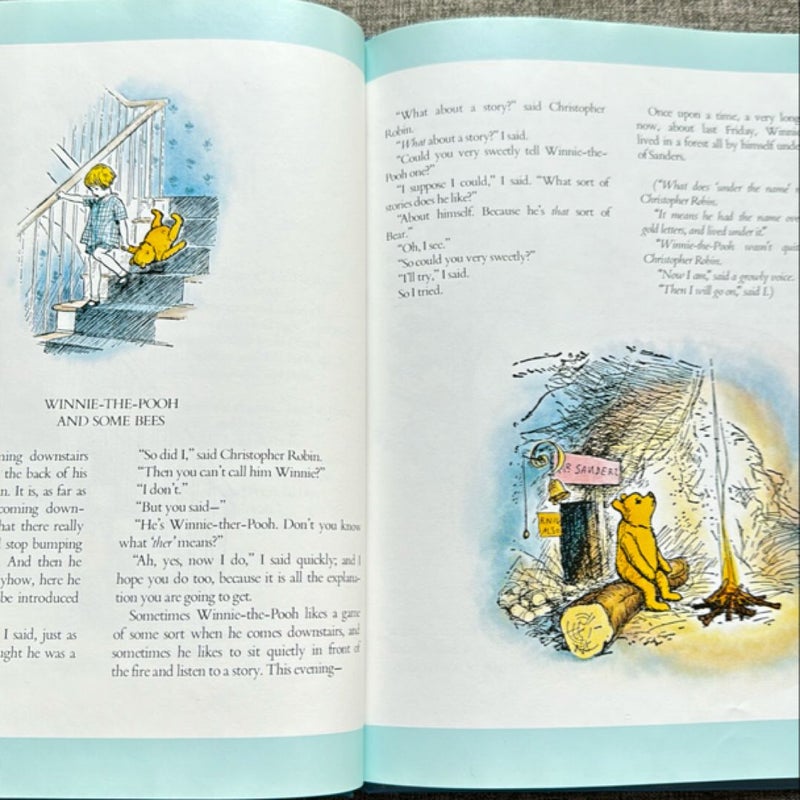 WINNIE-THE-POOH
AND SOME BEES
ning downstairs
the back of his
n. It is, as far as
coming down-
hat there really
stop bumping
And then he
yhow, here he
be introduced
I said, just as
ught he was a
"So did I," said Christopher Robin.
"Then you can't call him Winnie?"
"I don't."
"But you said—"
"He's Winnie-ther-Pooh. Don't you know
what 'ther' means?"
"Ah, yes, now I do," I said quickly; and I
hope you do too, because it is all the explana-
tion you are going to get.
Sometimes Winnie-the-Pooh likes a game
of some sort when he comes downstairs, and
sometimes he likes to sit quietly in front of
the fire and listen to a story. This evening—
"What about a story?" said Christopher
Robin.
"What about a story?" I said.
"Could you very sweetly tell Winnie-the-
Pooh one?"
"I suppose I could," I said. "What sort of
stories does he like?"
"About himself. Because he's that sort of
Bear."
"Oh, I see."
"So could you very sweetly?"
"I'll try," I said.
So I tried.
Once upon a time, a very long
now, about last Friday, Winnie
lived in a forest all by himself unde
of Sanders.
("What does 'under the name'
Christopher Robin.
"It means he had the name ove
gold letters, and lived under it."
"Winnie-the-Pooh wasn't quit
Christopher Robin.
"Now I am," said a growly voice.
"Then I will go on," said I.)
SANDERS
RNIG
ALSO